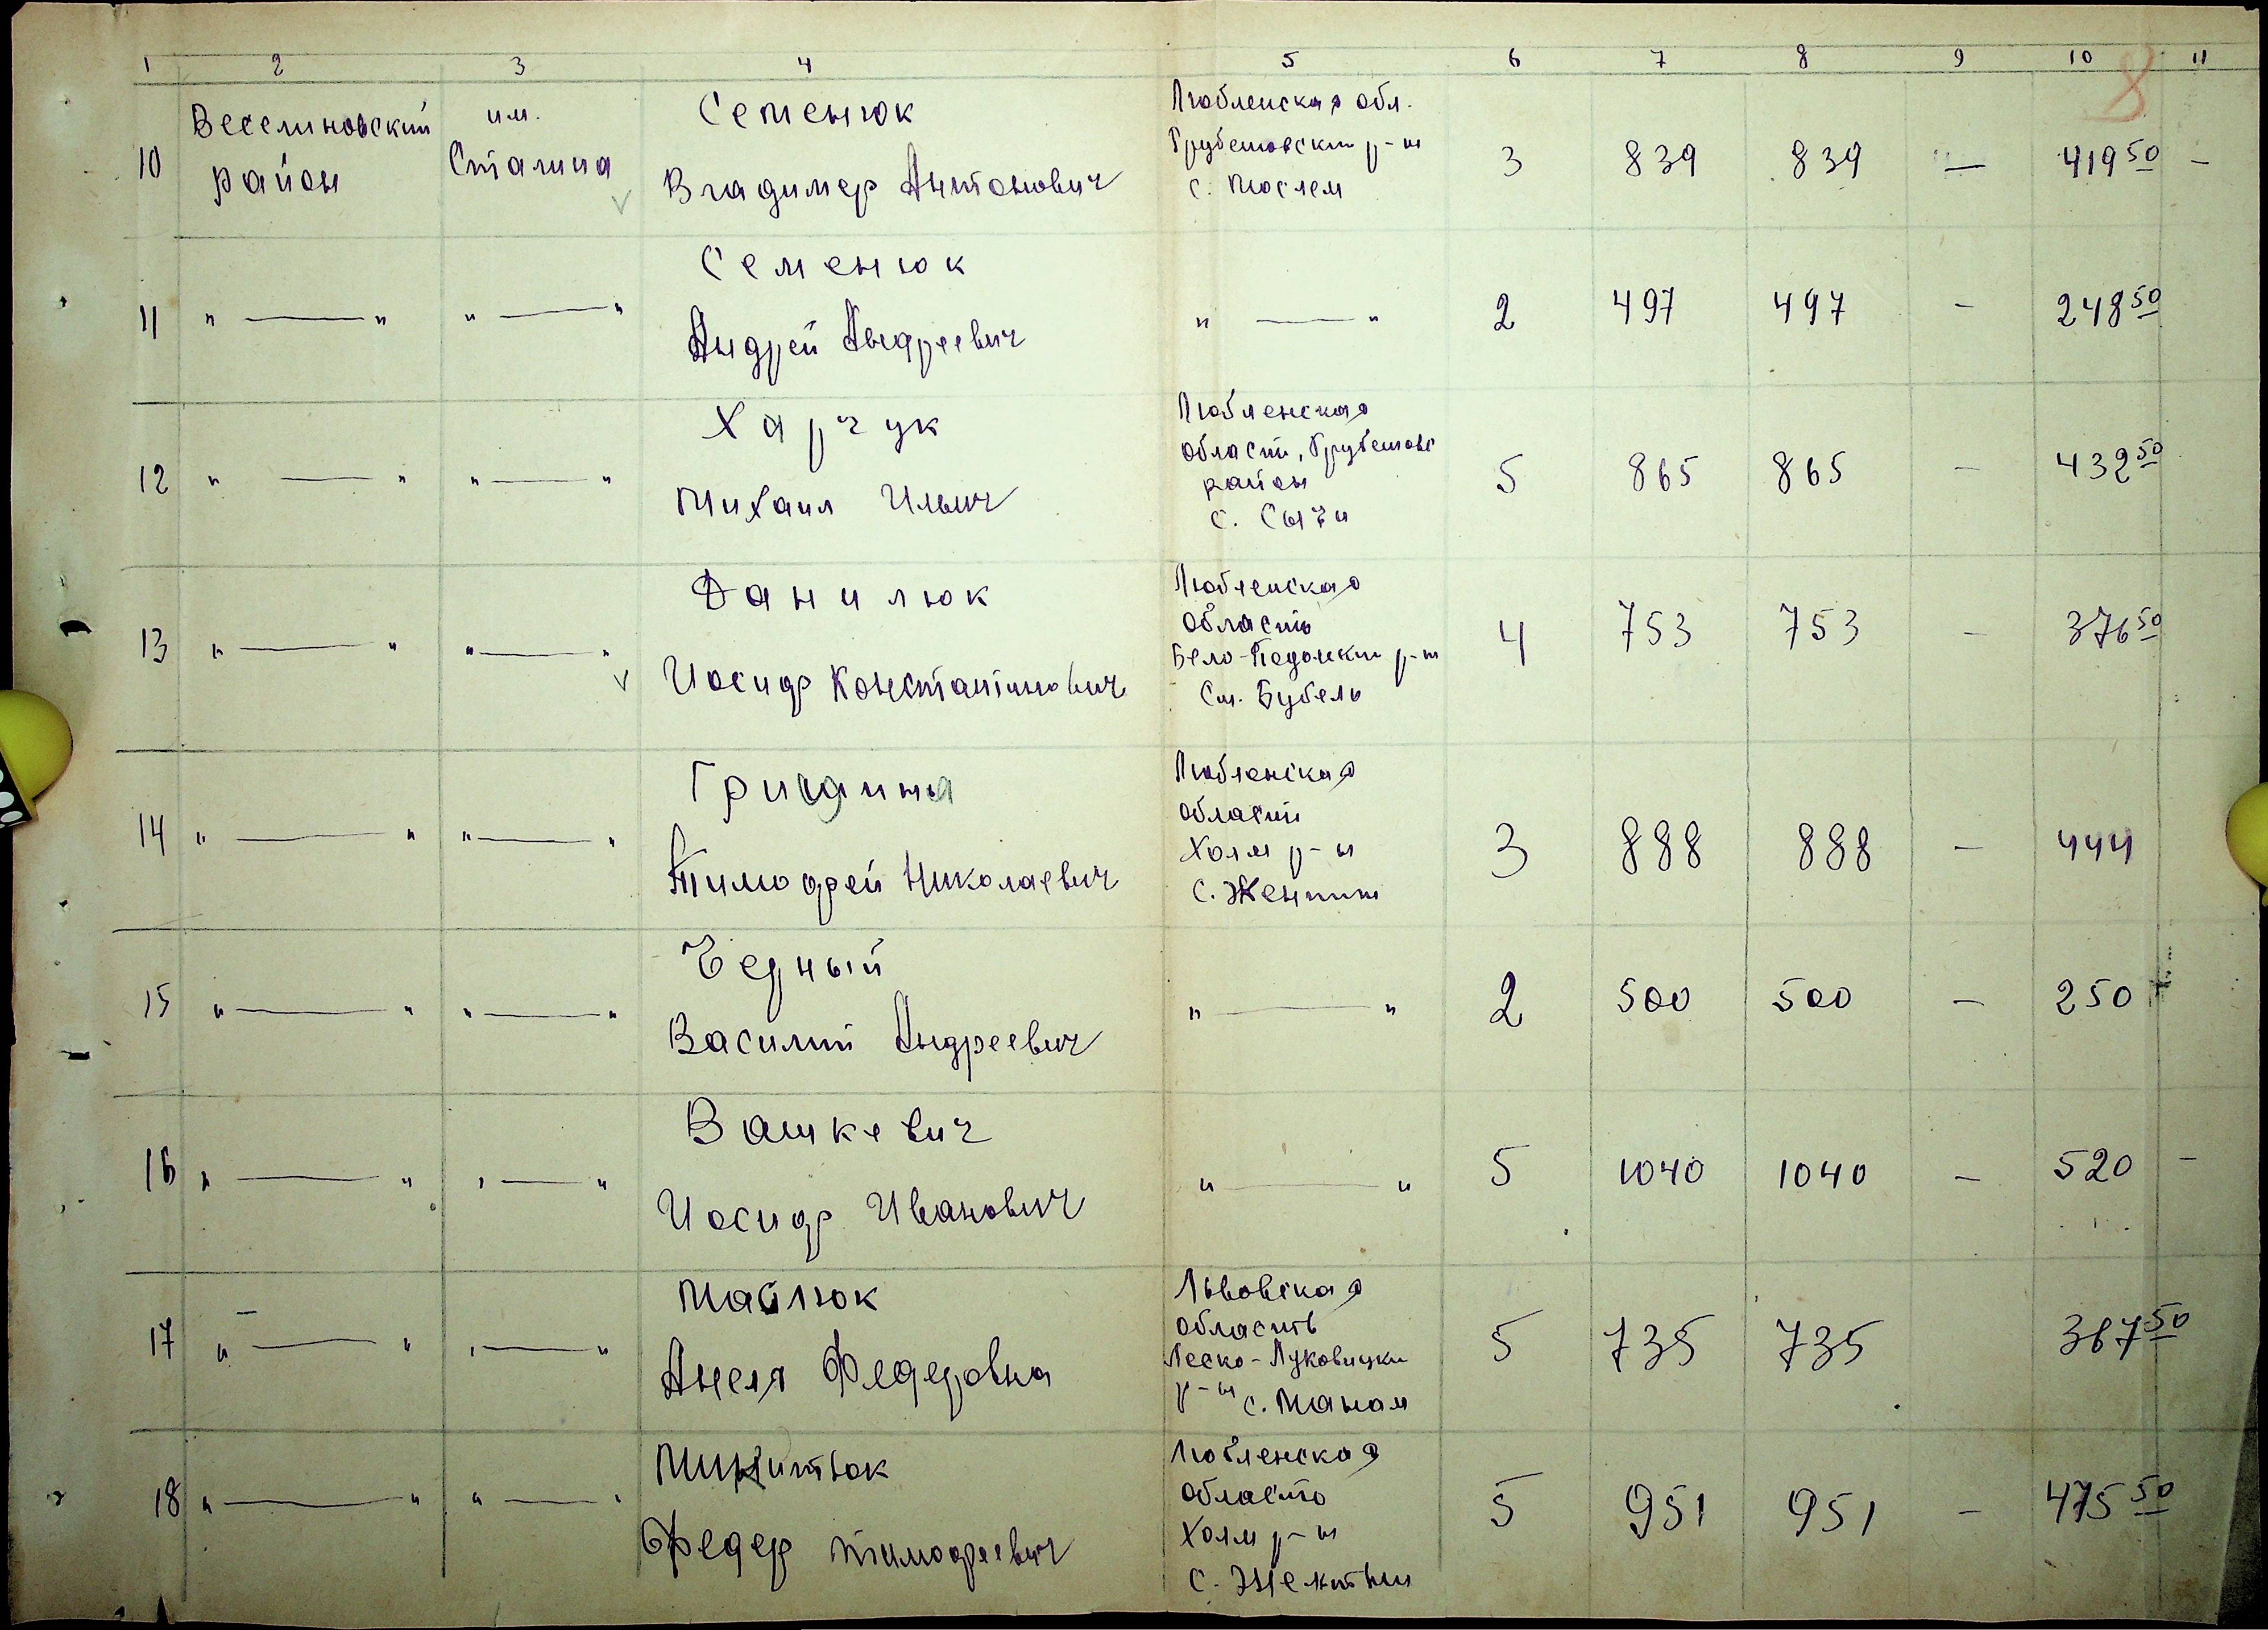 1 2 3 4 5 6 7 8 9 10 11
8
10 Веселиновский район им. Сталина Семенюк
Владимер Антонович
Любленская обл.
Грубешовский р-н
с. Мослем
3 839 839 — 419 50 —
11 " — " " — " Семенюк
Андрей Андреевич
" — " 2 497 497 — 248 50
12 " — " " — " Харчук
Михаил Ильич
Любленская
область, Грубешовс
район
с.
5 865 865 — 432 50
13 " — " " — " Данилюк
Иосиф Константинович
Любленская
область
Бело-Подолский р-н
См. Бубель
4 753 753 — 376 50
14 " — " " — "
Тимофей Николаевич
Любленская
область
Холм р-н
с.
3 888 888 — 444
15 " — " " — " Черный
Василий Андреевич
" — " 2 500 500 — 250
16 " — " " — " Вашкевич
Иосиф Иванович
" — " 5 1040 1040 — 520 —
17 " — " " — "
Анеля Федеровна
Львовская
область
Леско-Луковицки
р-н с.
5 735 735 367 50
18 " — " " — " Микитюк
Федер Тимофеевич
Любленская
область
Холм р-н
с.
5 951 951 — 475 50